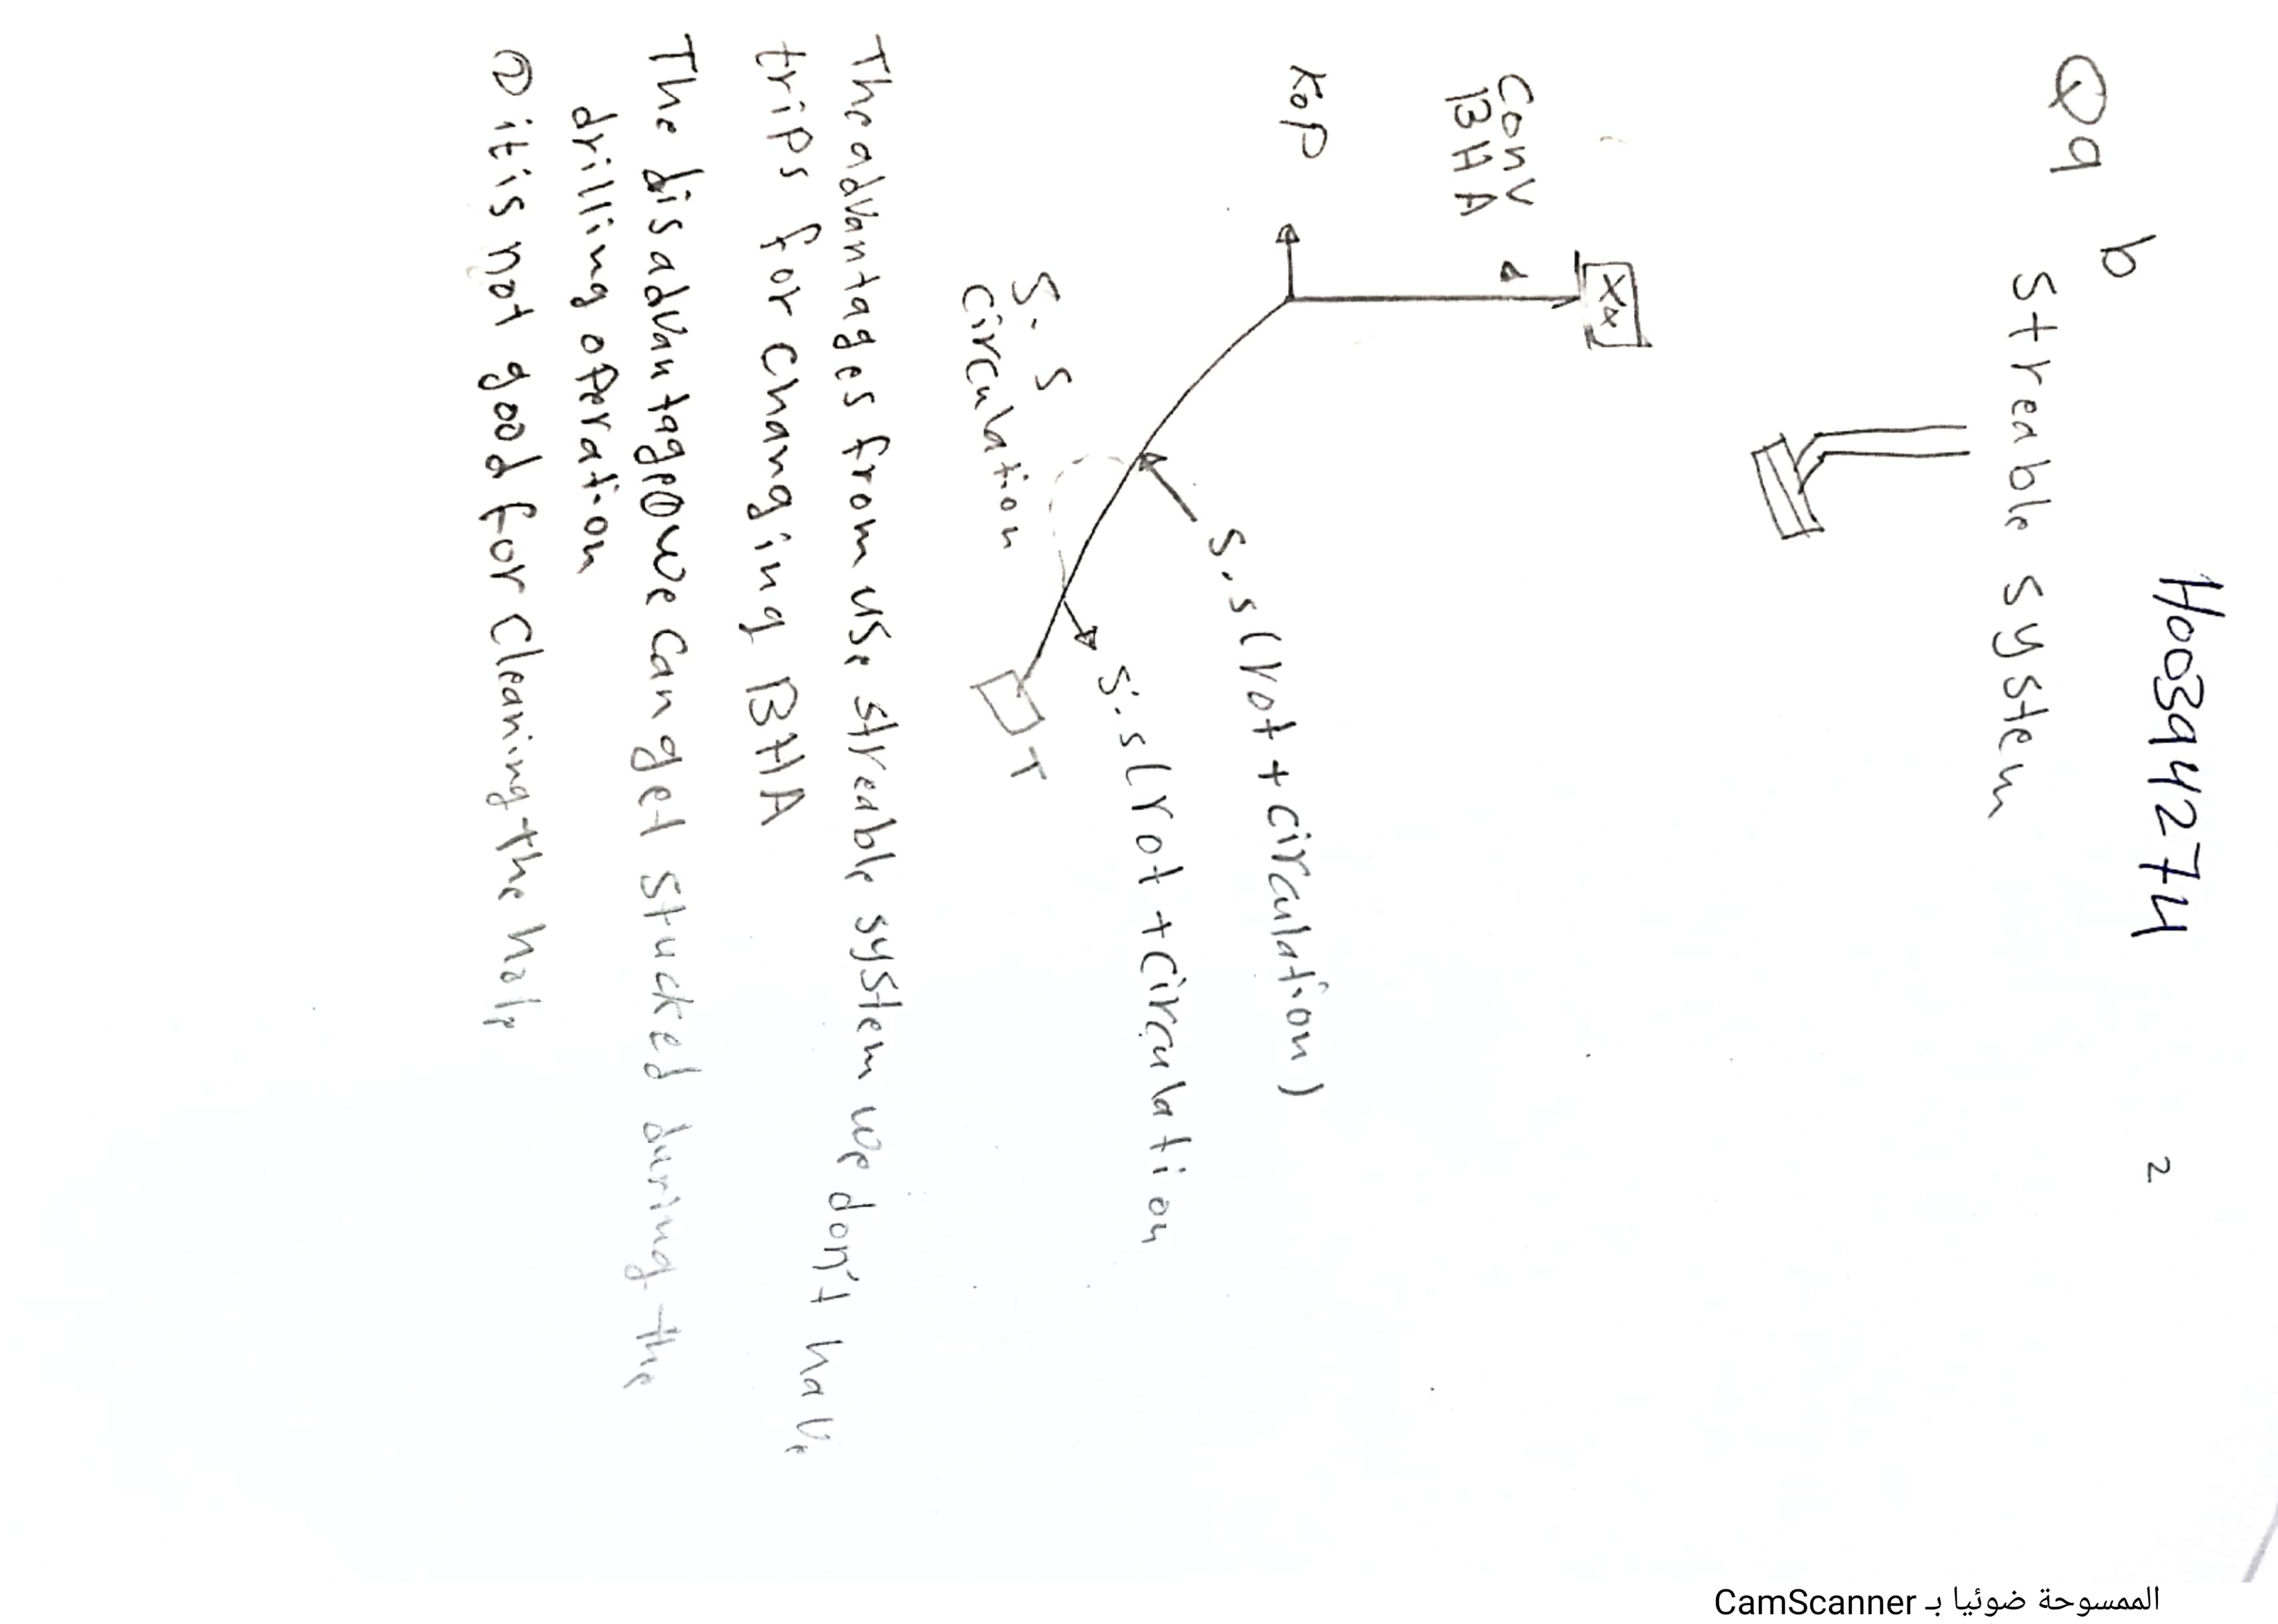 H00394274
2
Q9
b
Streable system
XX
Conv
BHA
KOP
S.S(rot+circulation)
S.S(rot+circulation
S.S
circulation
T
The advantages from use streable system we don't have
trips for changing BHA
The disadvantage ① we can get stucked during the
drilling operation
② it is not good for cleaning the hole
الممسوحة ضوئيا بـ CamScanner